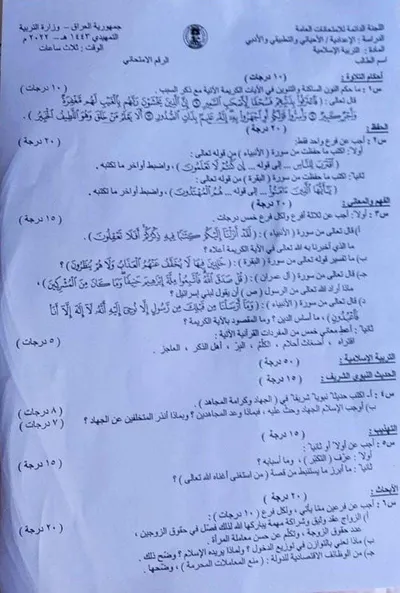 جمهورية العراق – وزارة التربية
التمهيدي ١٤٤٣ هـ – ٢٠٢٢ م
الوقت : ثلاث ساعات
الرقم الامتحاني
اللجنة الدائمة للامتحانات العامة
الدراسة : الإعدادية / الأحيائي والتطبيقي والأدبي
المادة : التربية الإسلامية
اسم الطالب
أحكام التلاوة : ( ١٠ درجات )
س١ : ما حكم النون الساكنة والتنوين في الآيات الكريمة الآتية مع ذكر السبب . ( ١٠ درجات )
قال تعالى : ( فَاعْتَرَفُوا بِذَنْبِهِمْ فَسُحْقًا لِأَصْحَابِ السَّعِيرِ ۝ إِنَّ الَّذِينَ يَخْشَوْنَ رَبَّهُمْ بِالْغَيْبِ لَهُمْ مَغْفِرَةٌ
وَأَجْرٌ كَبِيرٌ ۝ وَأَسِرُّوا قَوْلَكُمْ أَوِ اجْهَرُوا بِهِ إِنَّهُ عَلِيمٌ بِذَاتِ الصُّدُورِ ۝ أَلَا يَعْلَمُ مَنْ خَلَقَ وَهُوَ اللَّطِيفُ الْخَبِيرُ ).
الحفظ : ( ٢٠ درجة )
س٢ : أجب عن فرع واحد فقط: ( ٢٠ درجة )
أولاً: اكتب ما حفظت من سورة ( الأنبياء ) من قوله تعالى :
( اقْتَرَبَ لِلنَّاسِ ... إلى قوله ... إِنْ كُنْتُمْ لَا تَعْلَمُونَ ) ، واضبط أواخر ما تكتبه .
ثانياً: اكتب ما حفظت من سورة ( البقرة ) من قوله تعالى :
( يَا أَيُّهَا الَّذِينَ آمَنُوا ... إلى قوله ... هُمُ الْمُهْتَدُونَ ) ، واضبط أواخر ما تكتبه .
الفهم والمعاني : ( ٢٠ درجة )
س٣ : أولاً: أجب عن ثلاثة أفرع ولكل فرع خمس درجات. ( ١٥ درجة )
أ) قال تعالى من سورة ( الأنبياء ) : ( لَقَدْ أَنْزَلْنَا إِلَيْكُمْ كِتَابًا فِيهِ ذِكْرُكُمْ أَفَلَا تَعْقِلُونَ ).
ما الذي أخبرنا به الله تعالى في الآية الكريمة أعلاه ؟
ب) ما تفسير قوله تعالى من سورة ( البقرة ) : ( خَالِدِينَ فِيهَا لَا يُخَفَّفُ عَنْهُمُ الْعَذَابُ وَلَا هُمْ يُنْظَرُونَ )؟
ج) قال تعالى من سورة ( آل عمران ) : ( قُلْ صَدَقَ اللَّهُ فَاتَّبِعُوا مِلَّةَ إِبْرَاهِيمَ حَنِيفًا وَمَا كَانَ مِنَ الْمُشْرِكِينَ )،
ماذا أراد الله تعالى من الرسول ( ص ) أن يقول لبني إسرائيل ؟
د) قال تعالى من سورة ( الأنبياء ) : ( وَمَا أَرْسَلْنَا مِنْ قَبْلِكَ مِنْ رَسُولٍ إِلَّا نُوحِي إِلَيْهِ أَنَّهُ لَا إِلَهَ إِلَّا أَنَا
فَاعْبُدُونِ )، ما أساس الدين ؟ وما المقصود بالآية الكريمة ؟
ثانياً : أعطِ معاني خمس من المفردات القرآنية الآتية : ( ٥ درجات )
افتراه ، أضغاث أحلام ، الكَلِم ، البرّ ، أهل الذكر ، العاجز .
التربية الإسلامية : ( ٥٠ درجة )
الحديث النبوي الشريف : ( ١٥ درجة )
س٤ : أ- اكتب حديثاً نبوياً شريفاً في ( الجهاد وكرامة المجاهد ) . ( ٨ درجات )
ب) أوجب الإسلام الجهاد وحث عليه ، فبماذا وعد المجاهدين ؟ وبماذا أنذر المتخلفين عن الجهاد ؟ ( ٧ درجات )
التهذيب : ( ١٥ درجة )
س٥ : أجب عن أولاً أو ثانياً: ( ١٥ درجة )
أولاً : عرّف ( التكاثر ) ، وما أسبابه ؟
ثانياً : ما أبرز ما يستنبط من قصة ( من استغنى أغناه الله تعالى ) ؟
الأبحاث : ( ٢٠ درجة )
س٦ : أجب عن فرعين مما يأتي ، ولكل فرع ( ١٠ درجات ) : ( ٢٠ درجة )
أ) الزواج عقد وثيق وشراكة مهمة يباركها الله لذلك فصّل في حقوق الزوجين ،
عدد حقوق الزوجة ، وتكلّم عن حسن معاملة المرأة .
ب) ماذا نعني بالتوازن في توزيع الدخول ؟ ولماذا يريده الإسلام ؟ وضّح ذلك .
جـ) من الوظائف الاقتصادية للدولة : ( منع المعاملات المحرمة ) ، وضّحها .